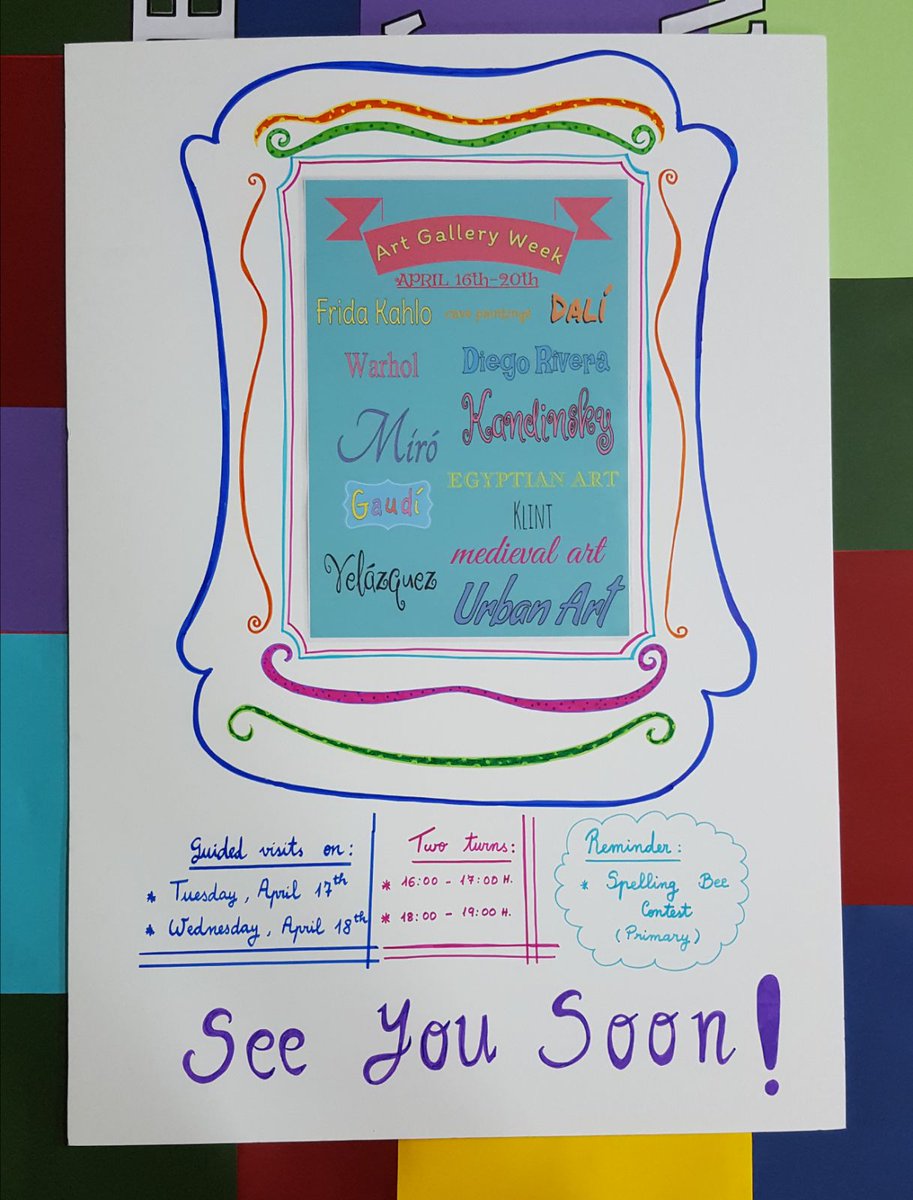 Art Gallery Week
APRIL 16th-20th
Frida Kahlo cave paintings DALÍ
Warhol Diego Rivera
Miró Kandinsky
EGYPTIAN ART
Gaudí
KLINT
medieval art
Velázquez
Urban Art
Guided visits on:
* Tuesday, April 17th
* Wednesday, April 18th
Two turns:
* 16:00 - 17:00 H.
* 18:00 - 19:00 H.
Reminder:
* Spelling Bee
Contest
(Primary)
See You Soon!